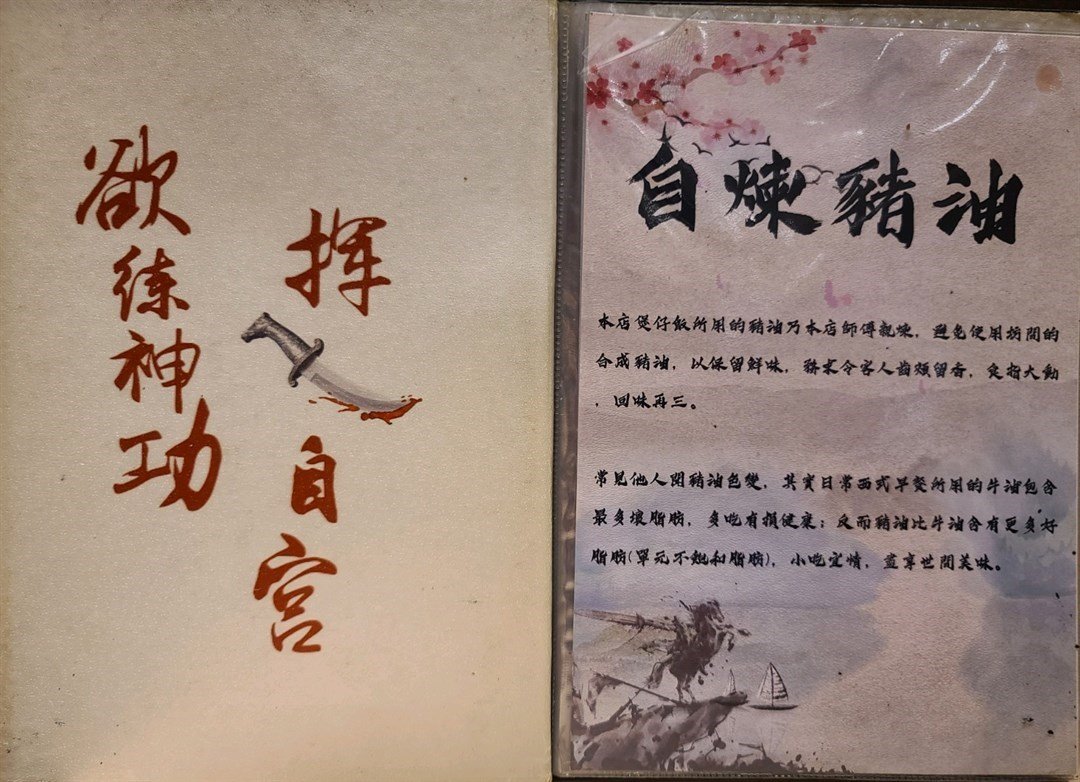 欲练神功
挥自宫
自煉豬油
本店煲仔飯所用的豬油乃本店師傅親煉，避免使用坊間的
合成豬油，以保留鮮味，務求令客人齒頰留香，食指大動
，回味再三。
常見他人聞豬油色變，其實日常西式早餐所用的牛油包含
最多壞脂肪，多吃有損健康；反而豬油比牛油含有更多好
脂肪(單元不飽和脂肪)，小吃宜情，盡享世間美味。